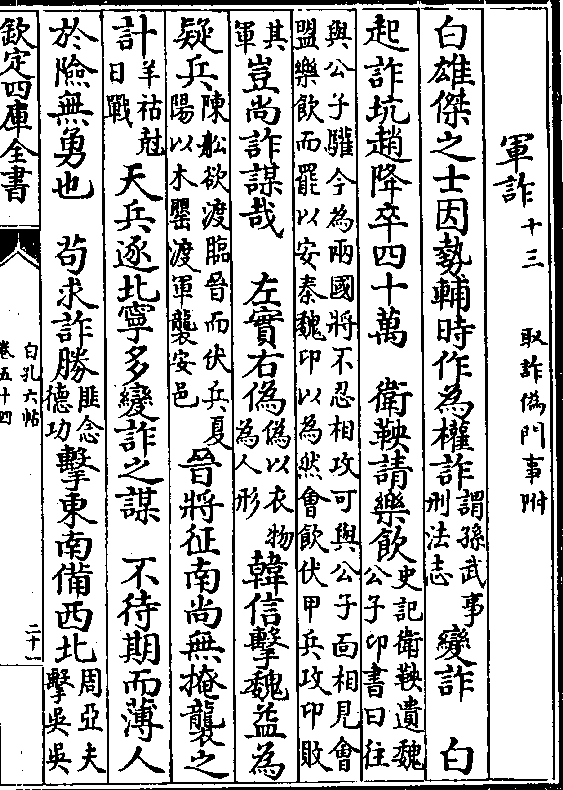 軍詐十三 取詐偽門事附
白雄傑之士因勢輔時作為權詐謂孫武事刑法志 變詐 白
起詐坑趙降卒四十萬 衛鞅請樂飲史記衛鞅遺魏公子卬書曰往
與公子驩今為兩國將不忍相攻可與公子面相見會盟樂飲而罷以安秦魏卬以為然會飲伏甲兵攻卬敗
其軍豈尚詐謀哉 左實右偽偽以衣物為人形 韓信擊魏益為
疑兵陳船欲渡臨晉而伏兵夏陽以木罌渡軍襲安邑 晉將征南尚無掩襲之
計羊祜尅日戰 天兵逐北寧多變詐之謀 不待期而薄人
於險無勇也 苟求詐勝匪念德功 擊東南備西北周亞夫擊吳吳
欽定四庫全書
白孔六帖
卷五十四
二十一